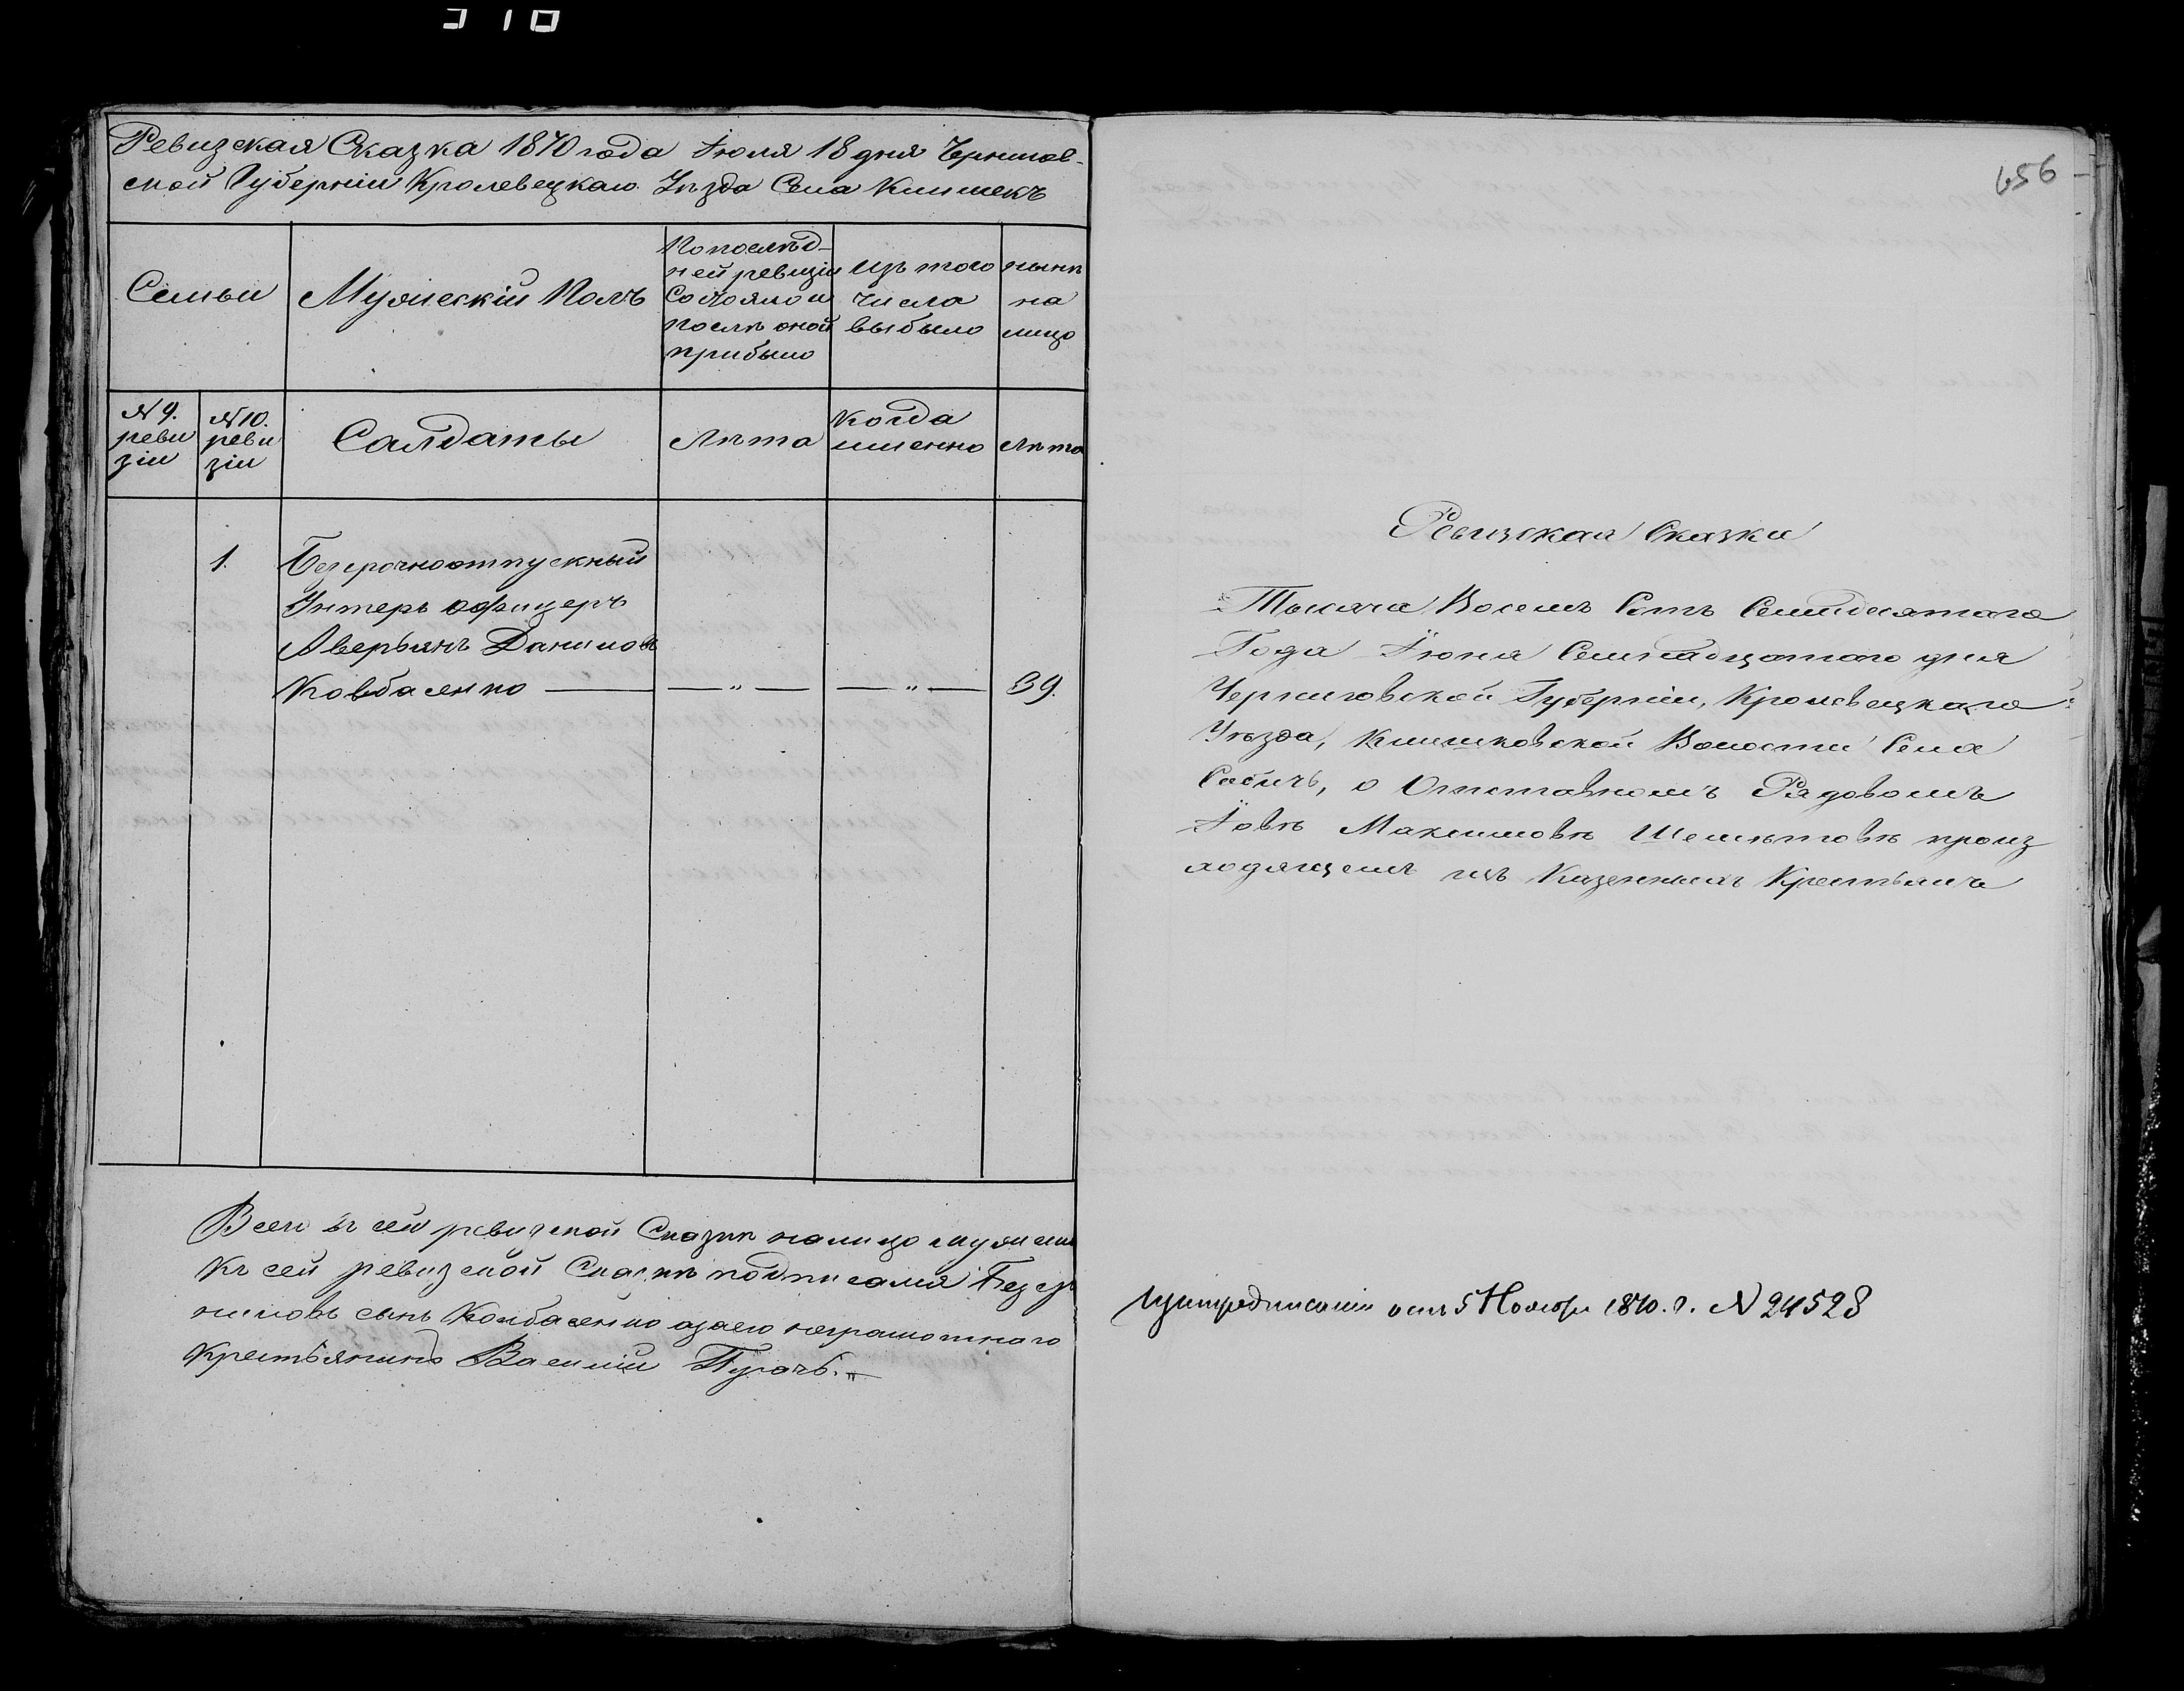 310
Ревизская Сказка 1870 года Іюля 18 дня Чернигов-
ской Губерніи Кролевецкаго Уѣзда Села Клишекъ
Семьи
Мужескій Полъ
По послѣд-
ней ревизіи
Состояло и
послѣ оной
прибыло
Изъ того
числа
выбыло
нынѣ
на
лицо
№ 9.
реви
зіи
№ 10.
реви
зіи
Салдаты
Лѣта
Когда
именно
Лѣта
1. Безсрочноотпускный
Унтеръ офицеръ
Аверьянъ Даниловъ
Ковбасенко — — „ — — „ — 39.
Всего въ сей ревизской Сказкѣ налицо мужеска
Къ сей ревизской Сказкѣ подписался Безср
ниловъ сынъ Ковбасенко азаего неграмотнаго
Крестьянинъ Василій Пугачъ.
656
Ревизская Сказка
Тысяча Восемъ Сотъ Семидесятаго
Года Іюня Семнадцатаго дня
Черниговской Губерніи, Кролевецкаго
Уѣзда, Клишковской Волости Села
Собичъ, о Отставномъ Рядовомъ
Іовѣ Максимовѣ Шеметовѣ произ
ходящемъ изъ Казенныхъ Крестьянъ
предписанію 5 Ноября 1870. г. № 24528